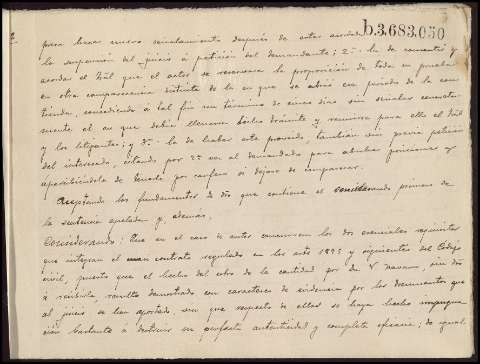 b.3.683.050
para hacer nuevo señalamiento después de estar acordada
la suspensión del juicio á petición del demandante; 2ª la de consentir y
acordar el Tral que el actor se reservara la proposición de toda su prueba
en otra comparecencia distinta de la en que se abrió un período de la con-
tienda, concediendo á tal fin un término de cinco días sin señalar concreta-
mente el en que debía llenarse dicho trámite y reunirse para ello el Tral
y los litigantes; y 3ª la de haber este proveido, tambien sin previa peticion
del interesado, citando por 2ª vez al demandado para absolver posiciones y
apercibiéndole de tenerlo por confeso si dejare de comparecer.
Aceptando los fundamentos de dro que contiene el considerando primero de
la sentencia apelada y además,
Considerando: Que en el caso de autos concurren los dos esenciales requisitos
que integran el contrato regulado en los arts 1895 y siguientes del Código
civil, puesto que el hecho del cobro de la cantidad por de V Navarro, sin dro
á recibirla, resulta demostrado con caracteres de evidencia por los documentos que
al juicio se han aportado sin que respecto de ellos se haya hecho impugna-
ción bastante á destruir su perfecta autenticidad y completa eficacia; de igual